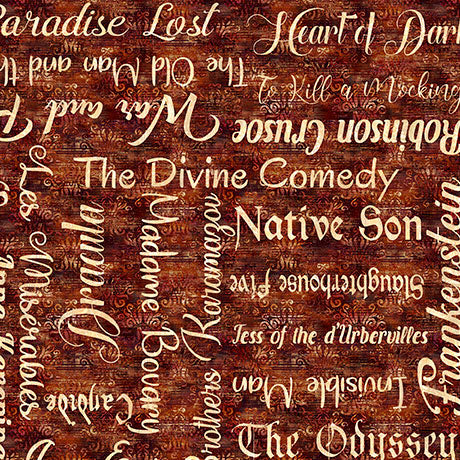 Paradise Lost
Heart of Dark
The Old Man and th
To Kill a Mocking
War and P
Robinson Crusoe
The Divine Comedy
Les Misérables
Dracula
Madame Bovary
Brothers Karamazov
Native Son
Slaughterhouse Five
Tess of the d'Urbervilles
Invisible Man
Frankenstein
Candide
The Odyssey